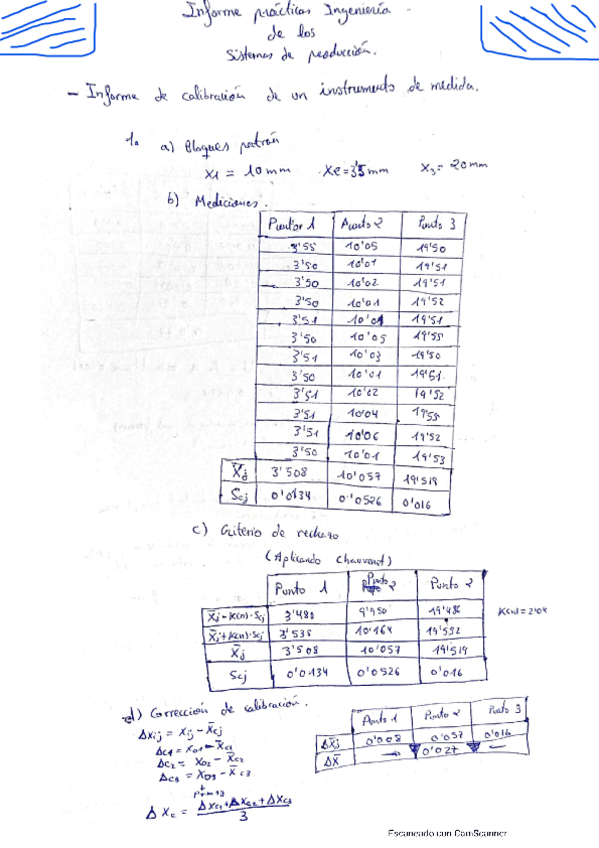 Informe prácticas Ingeniería
de los
Sistemas de producción.
- Informe de calibración de un instrumento de medida.
1. a) Bloques patrón
X1 = 10 mm X2 = 3'5 mm X3 = 20 mm
b) Mediciones.
Punto 1 Punto 2 Punto 3
3'55 10'05 19'50
3'50 10'01 19'51
3'50 10'02 19'51
3'50 10'01 19'52
3'51 10'01 19'51
3'50 10'05 19'55
3'51 10'03 19'50
3'50 10'01 19'51
3'51 10'02 19'52
3'51 10'04 19'55
3'51 10'06 19'52
3'50 10'01 19'53
X̄j 3'508 10'057 19'519
Scj 0'0134 0'0526 0'016
c) Criterio de rechazo
(Aplicando Chauvenet)
Punto 1 Punto 2 Punto 2
X̄j - K(n)·Scj 3'480 9'950 19'486 K(n) = 2'04
X̄j + K(n)·Scj 3'535 10'164 19'552
X̄j 3'508 10'057 19'519
Scj 0'0134 0'0526 0'016
d) Corrección de calibración.
Punto 1 Punto 2 Punto 3
Δxij = xij - X̄cj
ΔX̄j 0'008 0'057 0'016
Δc1 = X01 - X̄c1
ΔX̄ → 0'027 ←
Δc2 = X02 - X̄c2
Δc3 = X03 - X̄c3
ΔXc = ΔXc1 + ΔXc2 + ΔXc3
3
Escaneado con CamScanner